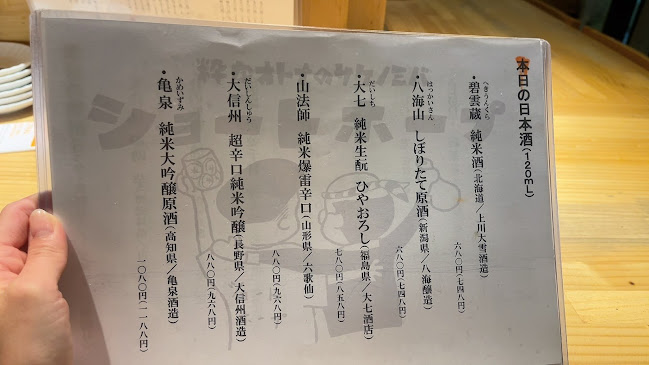 本日の日本酒(120mL)
へきうんくら
・碧雲蔵 純米酒(北海道/上川大雪酒造)
六八〇円(七四八円)
はっかいさん
・八海山 しぼりたて原酒(新潟県/八海醸造)
六八〇円(七四八円)
だいしち
・大七 純米生酛 ひやおろし(福島県/大七酒店)
七八〇円(八五八円)
・山法師 純米爆雷辛口(山形県/六歌仙)
八八〇円(九六八円)
だいしんしゅう
・大信州 超辛口純米吟醸(長野県/大信州酒造)
八八〇円(九六八円)
かめいずみ
・亀泉 純米大吟醸原酒(高知県/亀泉酒造)
一〇八〇円(一一八八円)
ショートホープ